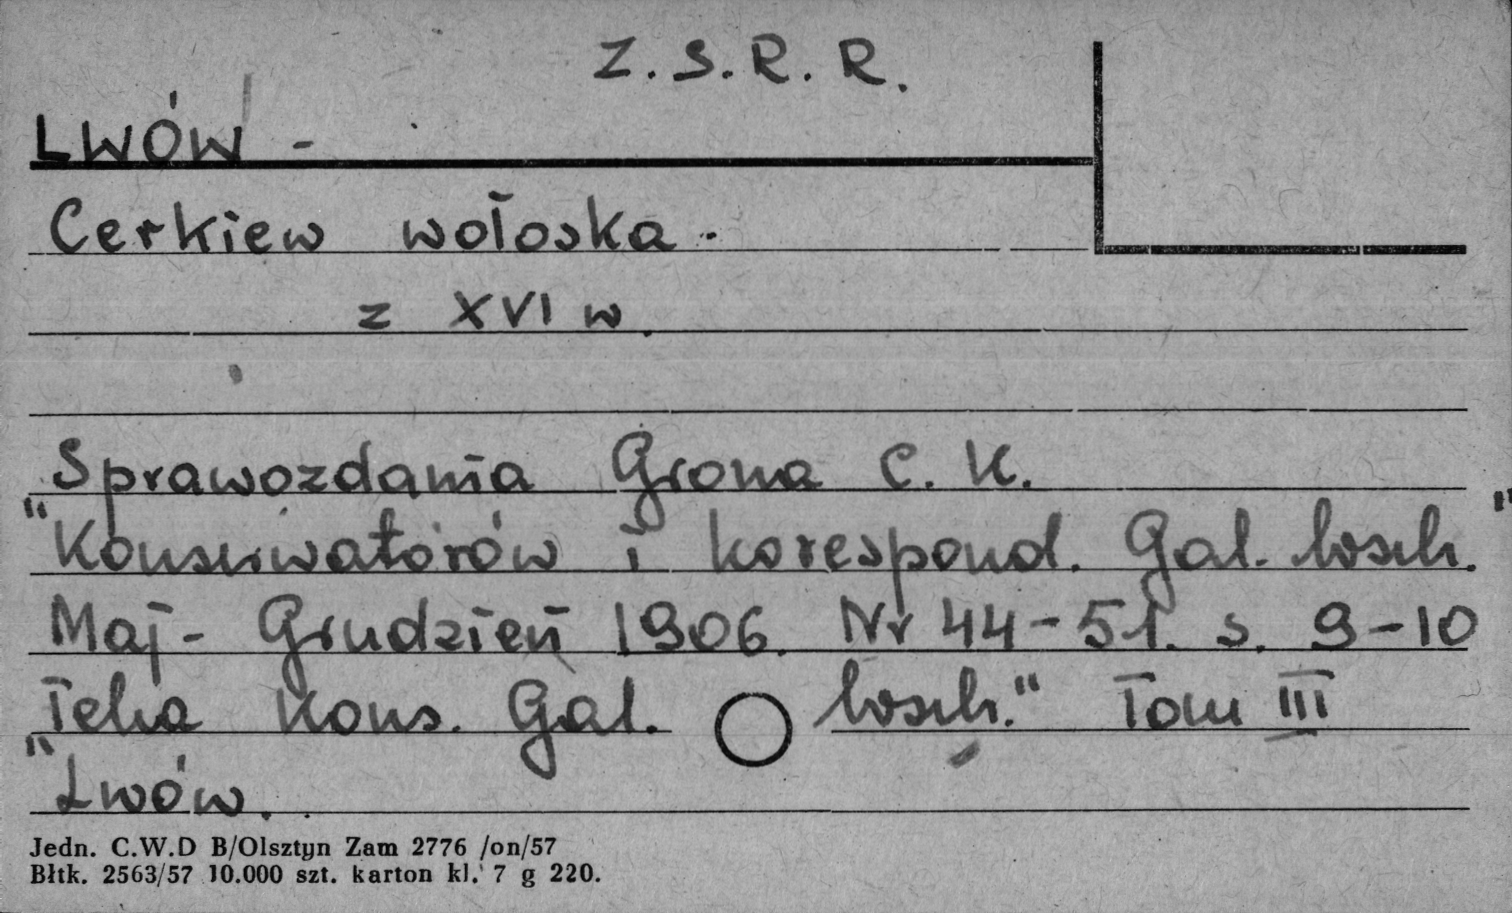 Z.S.R.R.
LWÓW -
Cerkiew wołoska.
z XVI w.
Sprawozdania Grona C. K.
"Konserwatorów i korespond. Gal. wsch."
Maj - Grudzień 1906. Nr 44-51. s. 9-10
"Teka Kons. Gal. wsch." Tom III
Lwów.
Jedn. C.W.D B/Olsztyn Zam 2776 /on/57
Błtk. 2563/57 10.000 szt. karton kl. 7 g 220.